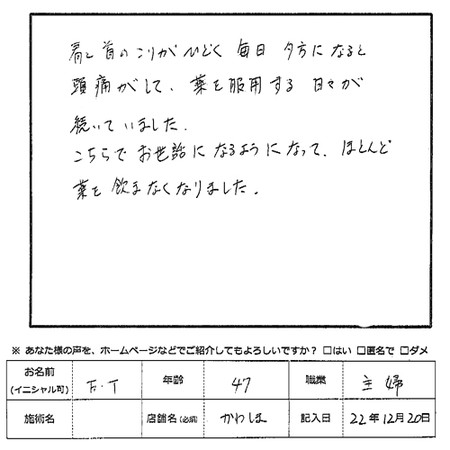 肩と首のこりがひどく 毎日 夕方になると
頭痛がして、薬を服用する 日々が
続いていました.
こちらで お世話に なるようになって、ほとんど
薬を 飲まなくなりました。
※ あなた様の声を、ホームページなどでご紹介してもよろしいですか? □はい □匿名で □ダメ
お名前 (イニシャル可) F・T 年齢 47 職業 主婦
施術名 店舗名 (必須) かわしま 記入日 22年12月20日